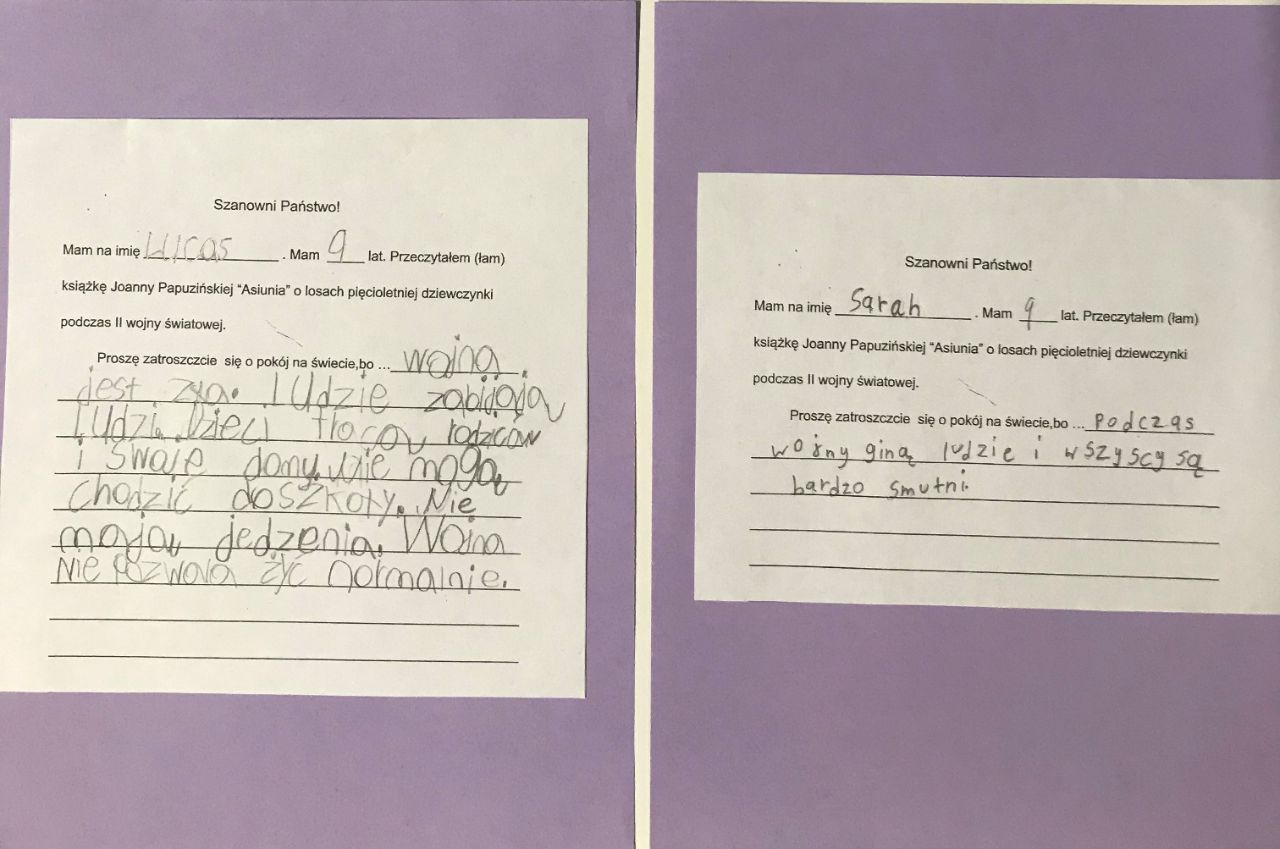 Szanowni Państwo!
Mam na imię Lucas . Mam 9 lat. Przeczytałem (łam)
książkę Joanny Papuzińskiej “Asiunia” o losach pięcioletniej dziewczynki
podczas II wojny światowej.
Proszę zatroszczcie się o pokój na świecie,bo ... wojna
jest zła. Ludzie zabijają
ludzi. Dzieci tracą rodziców
i swoje domy. Nie mogą
chodzić do szkoły. Nie
mają jedzenia. Wojna
nie pozwala żyć normalnie.
Szanowni Państwo!
Mam na imię Sarah . Mam 9 lat. Przeczytałem (łam)
książkę Joanny Papuzińskiej “Asiunia” o losach pięcioletniej dziewczynki
podczas II wojny światowej.
Proszę zatroszczcie się o pokój na świecie,bo ... podczas
wojny giną ludzie i wszyscy są
bardzo smutni.